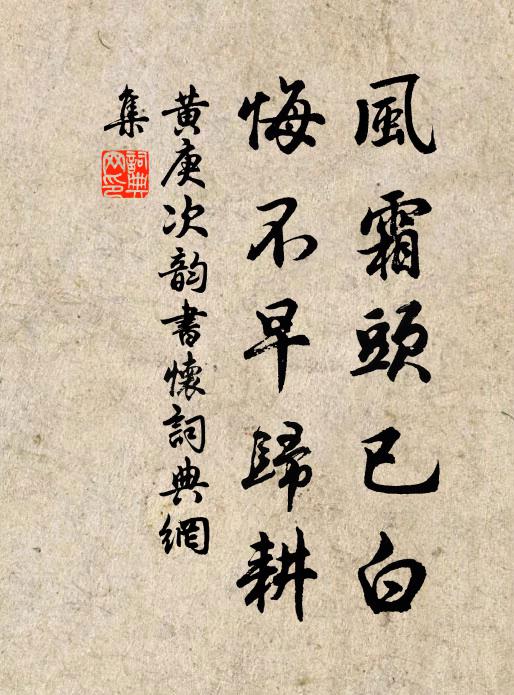 風霜頭已白
悔不早歸耕
黄庚次韵書懷詞典網
集
詞典网印